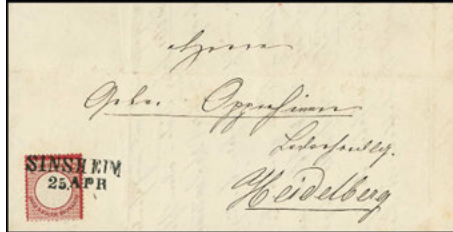 Herren
Gebr. Oppenheimer
Lederhandlg.
Heidelberg
SINSHEIM
25.APR